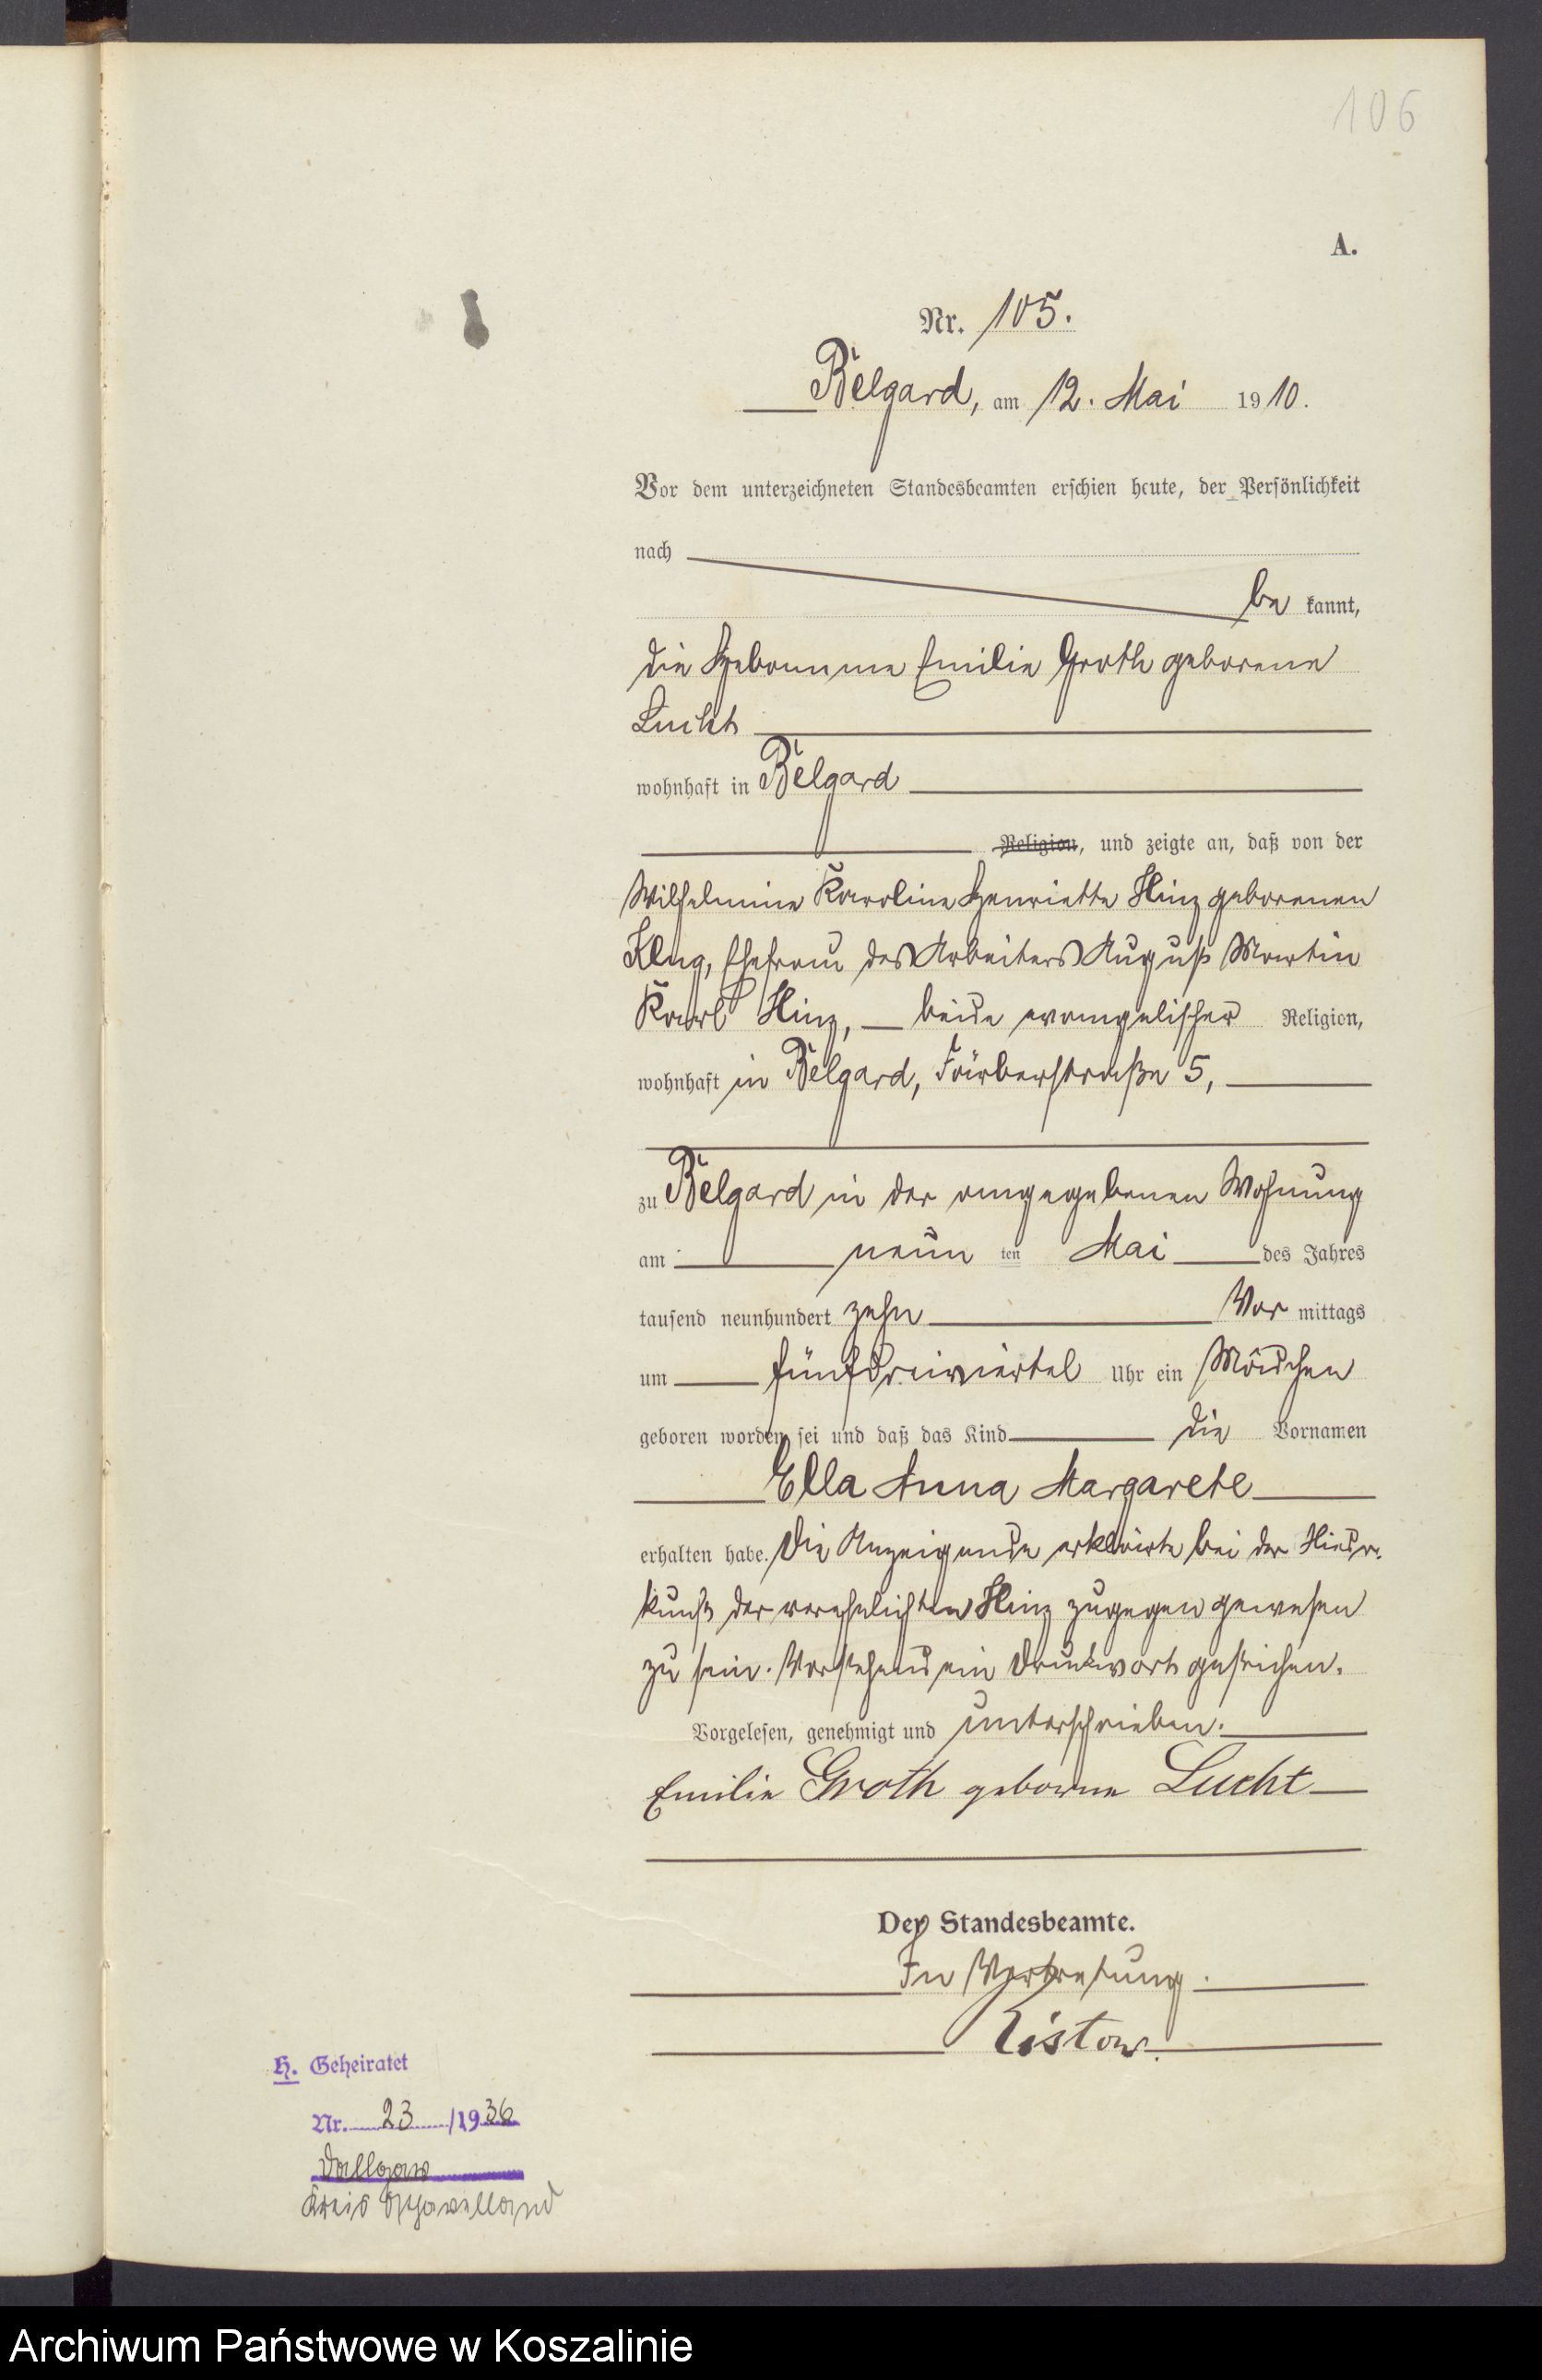 106
A.
Nr. 105.
Belgard, am 12. Mai 1910.
Vor dem unterzeichneten Standesbeamten erschien heute, der Persönlichkeit
nach
be kannt,
die Hebamme Emilie Groth geborene
Lucht
wohnhaft in Belgard
Religion, und zeigte an, daß von der
Wilhelmine Karoline Henriette Hinz geborenen
Klug, Ehefrau des Arbeiters August Martin
Karl Hinz, beide evangelischer Religion,
wohnhaft in Belgard, Färberstraße 5,
zu Belgard in der angegebenen Wohnung
am neun ten Mai des Jahres
tausend neunhundert zehn Vor mittags
um fünfdreiviertel Uhr ein Mädchen
geboren worden sei und daß das Kind die Vornamen
Ella Anna Margarete
erhalten habe. Die Anzeigende erklärte bei der Nieder-
kunft der verehelichten Hinz zugegen gewesen
zu sein. Vorstehend ein Druckwort gestrichen.
Vorgelesen, genehmigt und unterschrieben.
Emilie Groth geborene Lucht
Der Standesbeamte.
In Vertretung.
H. Geheiratet
Nr. 23 /1936
Dallgow
Kreis Osthavelland
Archiwum Państwowe w Koszalinie